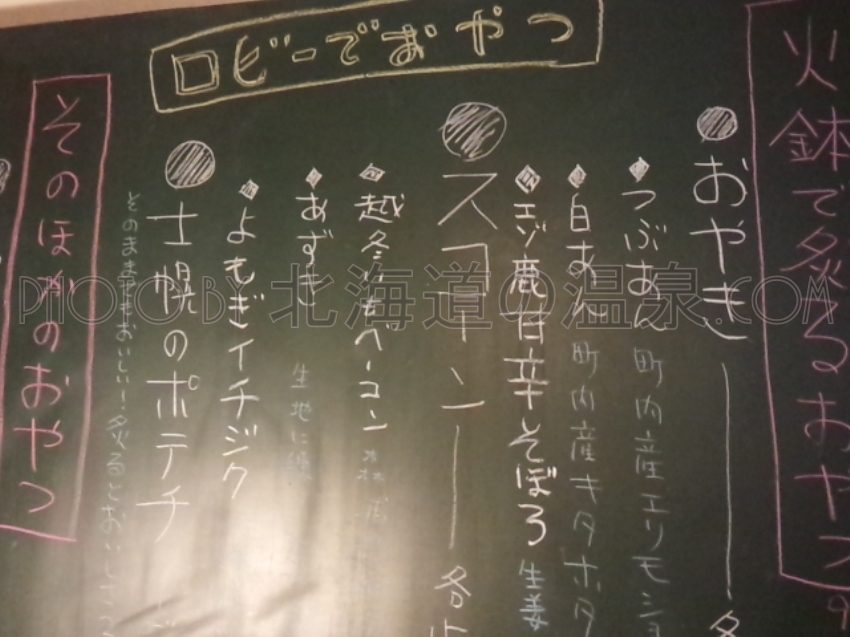 ロビーでおやつ
火鉢で炙るおやつ
おやき
つぶあん 町内産エリモショ
白あん 町内産キタホタ
エゾ鹿甘辛そぼろ 生姜
スコーン
越冬いもベーコン
あずき 生地に
よもぎイチジク
士幌のポテチ
そのままでもおいしい!炙るとおいしさ
そのほかのおやつ
PHOTO BY 北海道の温泉.COM